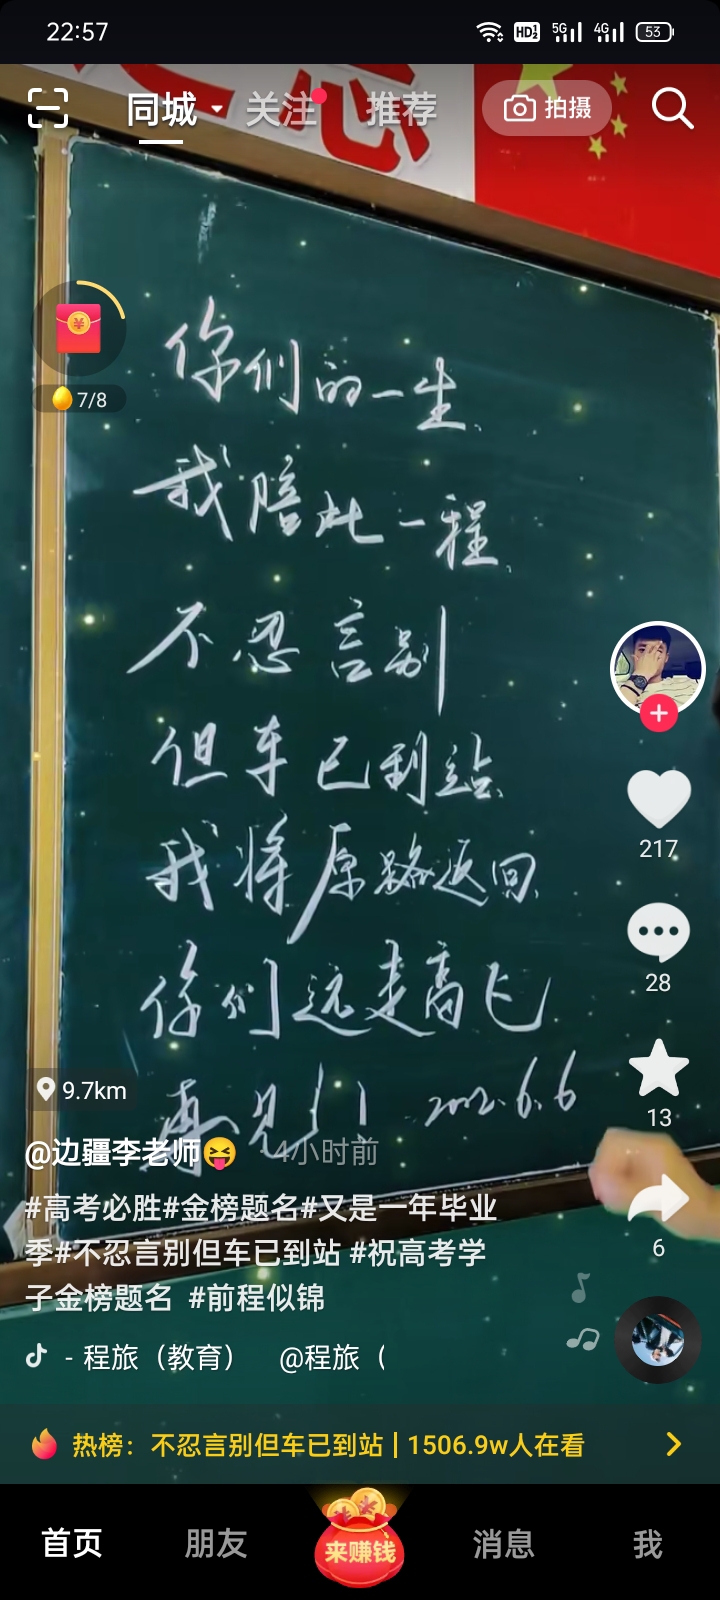 22:57
HD 5G 4G 53
同城 关注 推荐 拍摄
你们的一生、
我陪此一程、
7/8
不忍言别
但车已到站、
我将原路返回、
你们远走高飞
再见！！ 2022.6.6
217
28
13
6
9.7km
@边疆李老师😝 · 4小时前
#高考必胜#金榜题名#又是一年毕业
季#不忍言别但车已到站 #祝高考学
子金榜题名 #前程似锦
- 程旅（教育） @程旅（
热榜：不忍言别但车已到站 | 1506.9w人在看
首页 朋友 来赚钱 消息 我